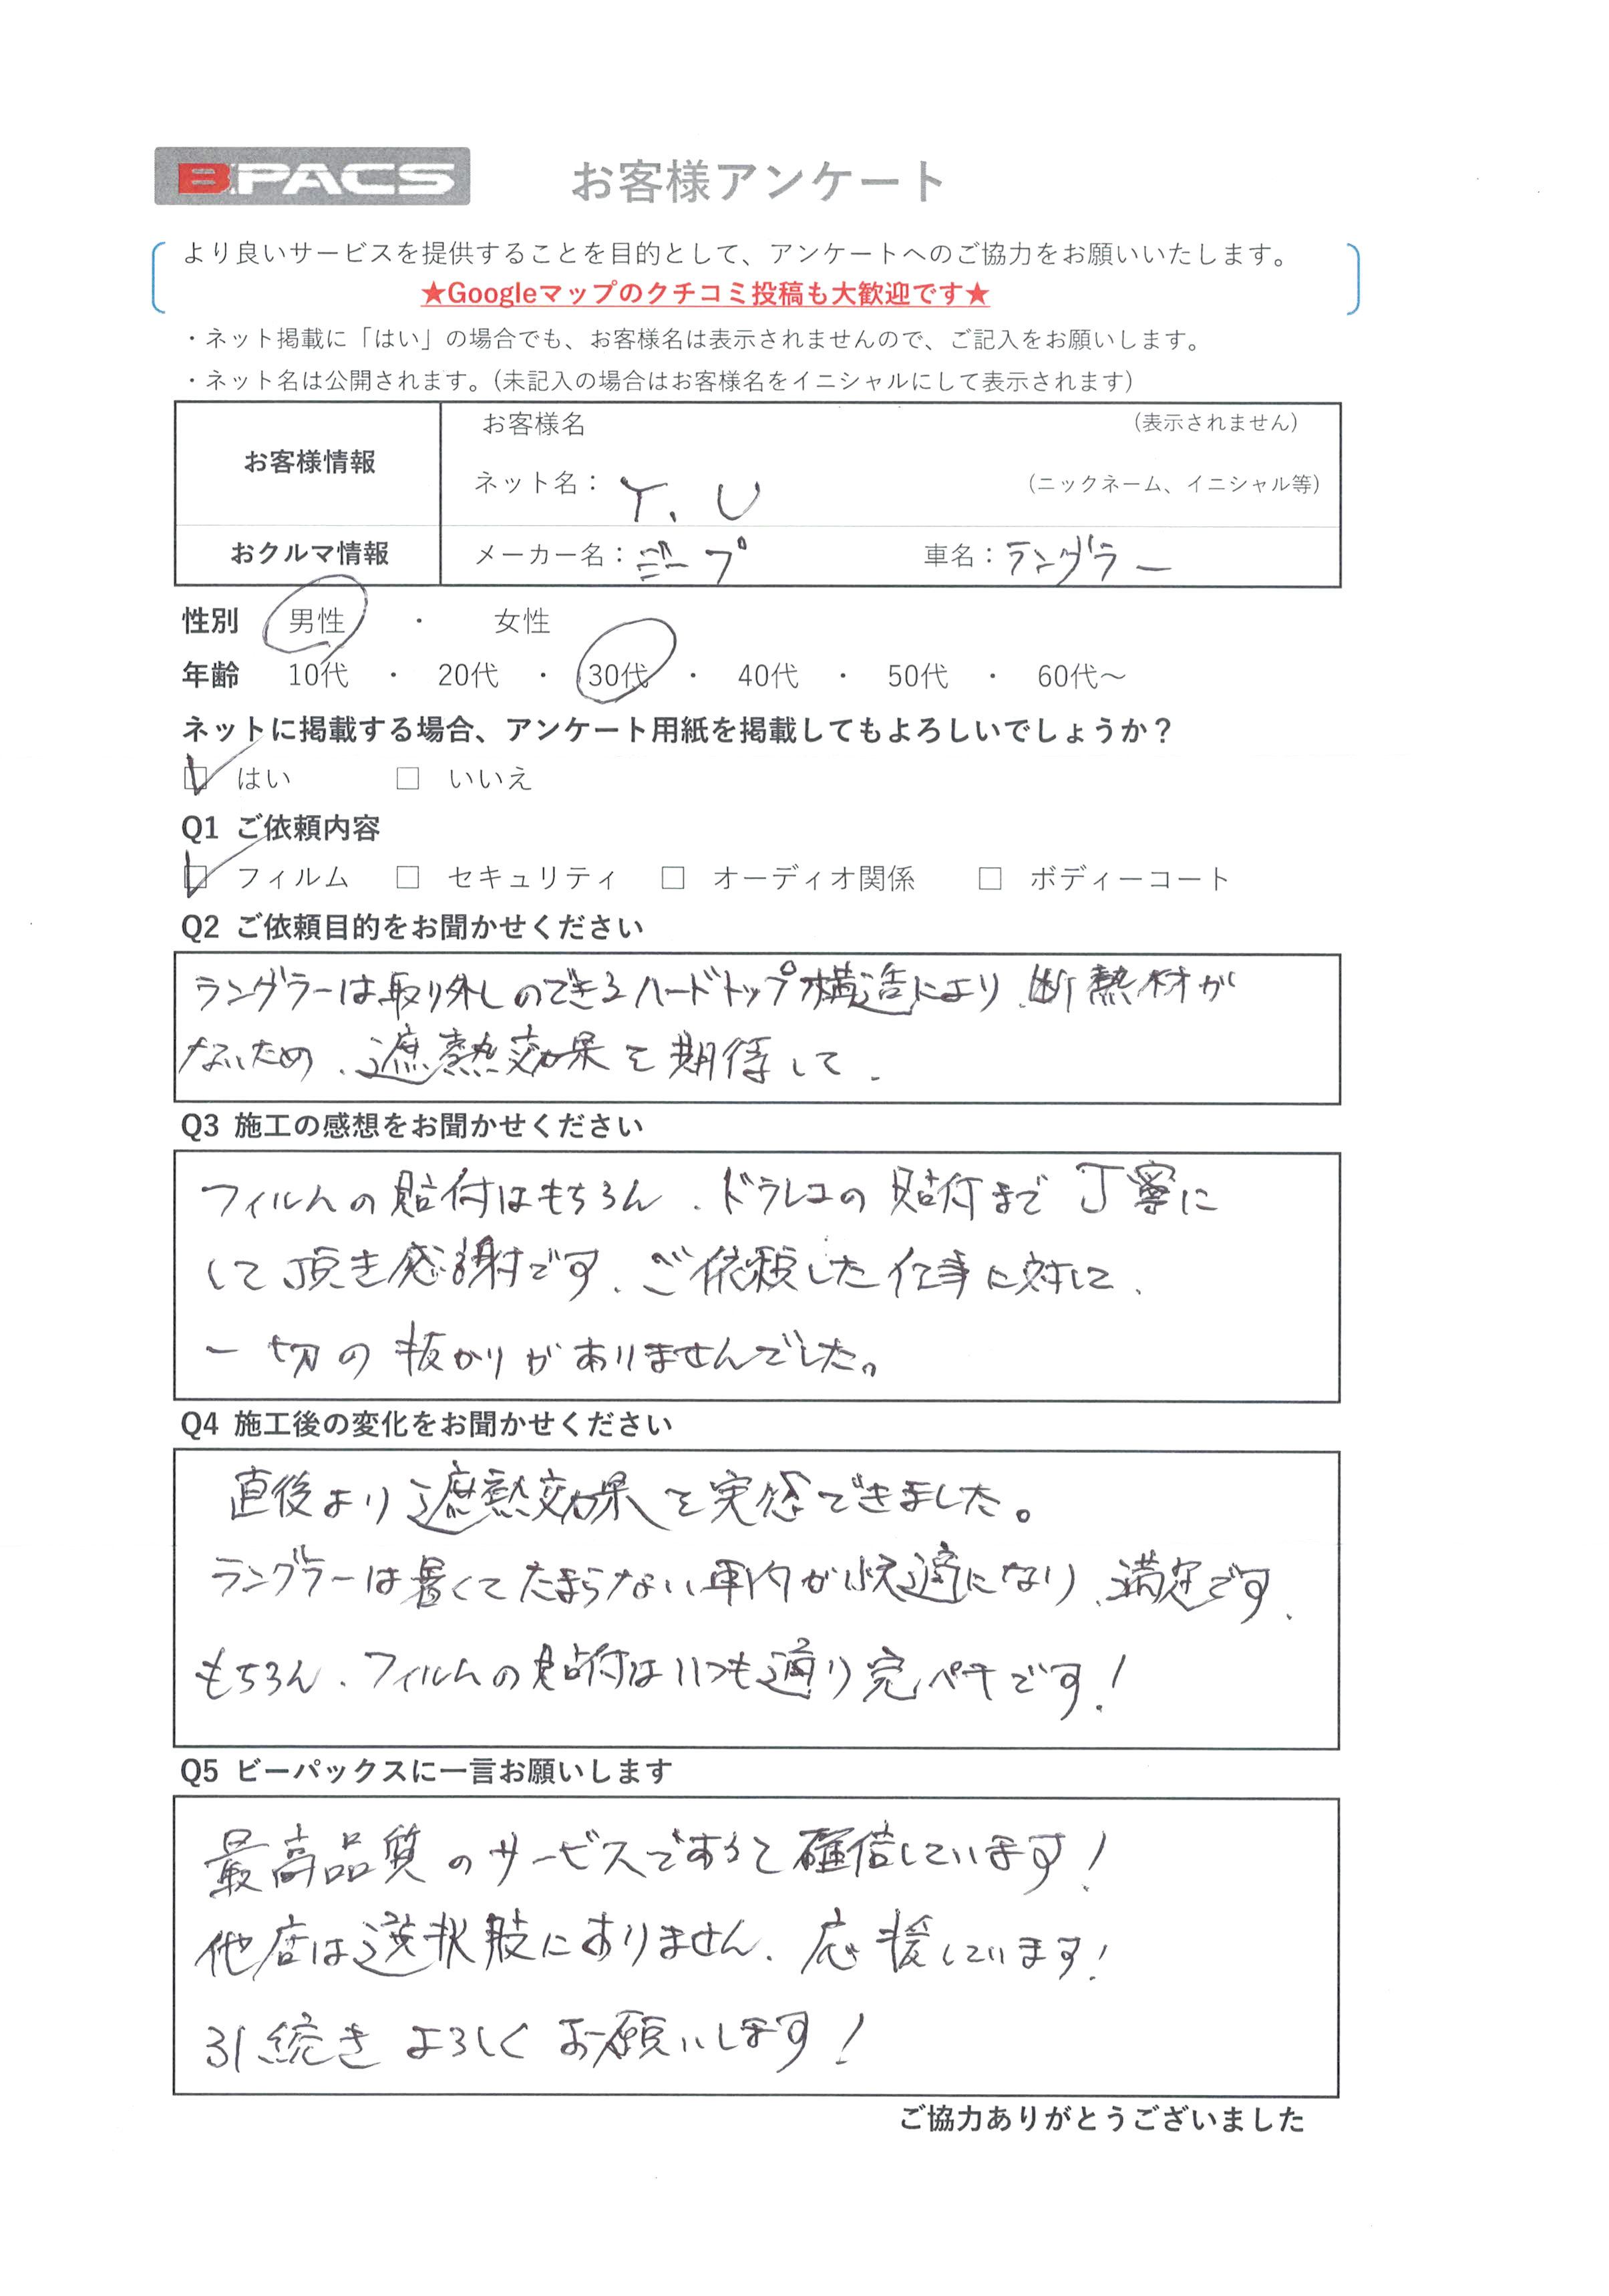 B.PACS お客様アンケート
より良いサービスを提供することを目的として、アンケートへのご協力をお願いいたします。
★Googleマップのクチコミ投稿も大歓迎です★
・ネット掲載に「はい」の場合でも、お客様名は表示されませんので、ご記入をお願いします。
・ネット名は公開されます。(未記入の場合はお客様名をイニシャルにして表示されます)
お客様情報 お客様名 (表示されません)
ネット名： Y.U (ニックネーム、イニシャル等)
おクルマ情報 メーカー名：ジープ 車名：ラングラー
性別 男性 ・ 女性
年齢 10代 ・ 20代 ・ 30代 ・ 40代 ・ 50代 ・ 60代～
ネットに掲載する場合、アンケート用紙を掲載してもよろしいでしょうか？
☑ はい □ いいえ
Q1 ご依頼内容
☑ フィルム □ セキュリティ □ オーディオ関係 □ ボディーコート
Q2 ご依頼目的をお聞かせください
ラングラーは取り外しのできるハードトップ構造により、断熱材が
ないため、遮熱効果を期待して。
Q3 施工の感想をお聞かせください
フィルムの貼付はもちろん、ドラレコの貼付まで丁寧に
して頂き感謝です。ご依頼した仕事に対して、
一切の抜かりがありませんでした。
Q4 施工後の変化をお聞かせください
直後より遮熱効果を実感できました。
ラングラーは暑くてたまらない車内が快適になり、満足です。
もちろん、フィルムの貼付はいつも通り完ペキです！
Q5 ビーパックスに一言お願いします
最高品質のサービスであると確信しています！
他店は選択肢にありません。応援しています！
引続きよろしくお願いします！
ご協力ありがとうございました